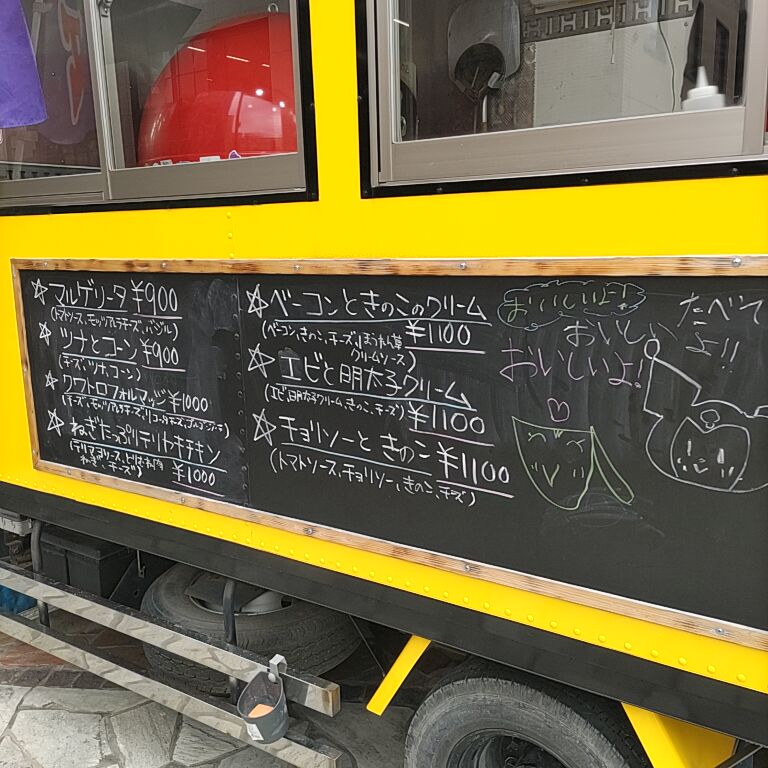 ☆マルゲリータ ¥900
(トマトソース、モッツァレラチーズ、バジル)
☆ツナとコーン ¥900
(チーズ、ツナ、コーン)
☆クワトロフォルマッジ ¥1000
☆ねぎたっぷりテリヤキチキン
(テリマヨソース、とりもも肉
ねぎ、チーズ) ¥1000
☆ベーコンときのこのクリーム
(ベーコン、きのこ、チーズ、ほうれん草 ¥1100
クリームソース)
☆エビと明太子クリーム
(エビ、明太子クリーム、きのこ、チーズ) ¥1100
☆チョリソーときのこ ¥1100
(トマトソース、チョリソー、きのこ、チーズ)
おいしいよ!
おいしい
おいしいよ!
たべて
よ!!